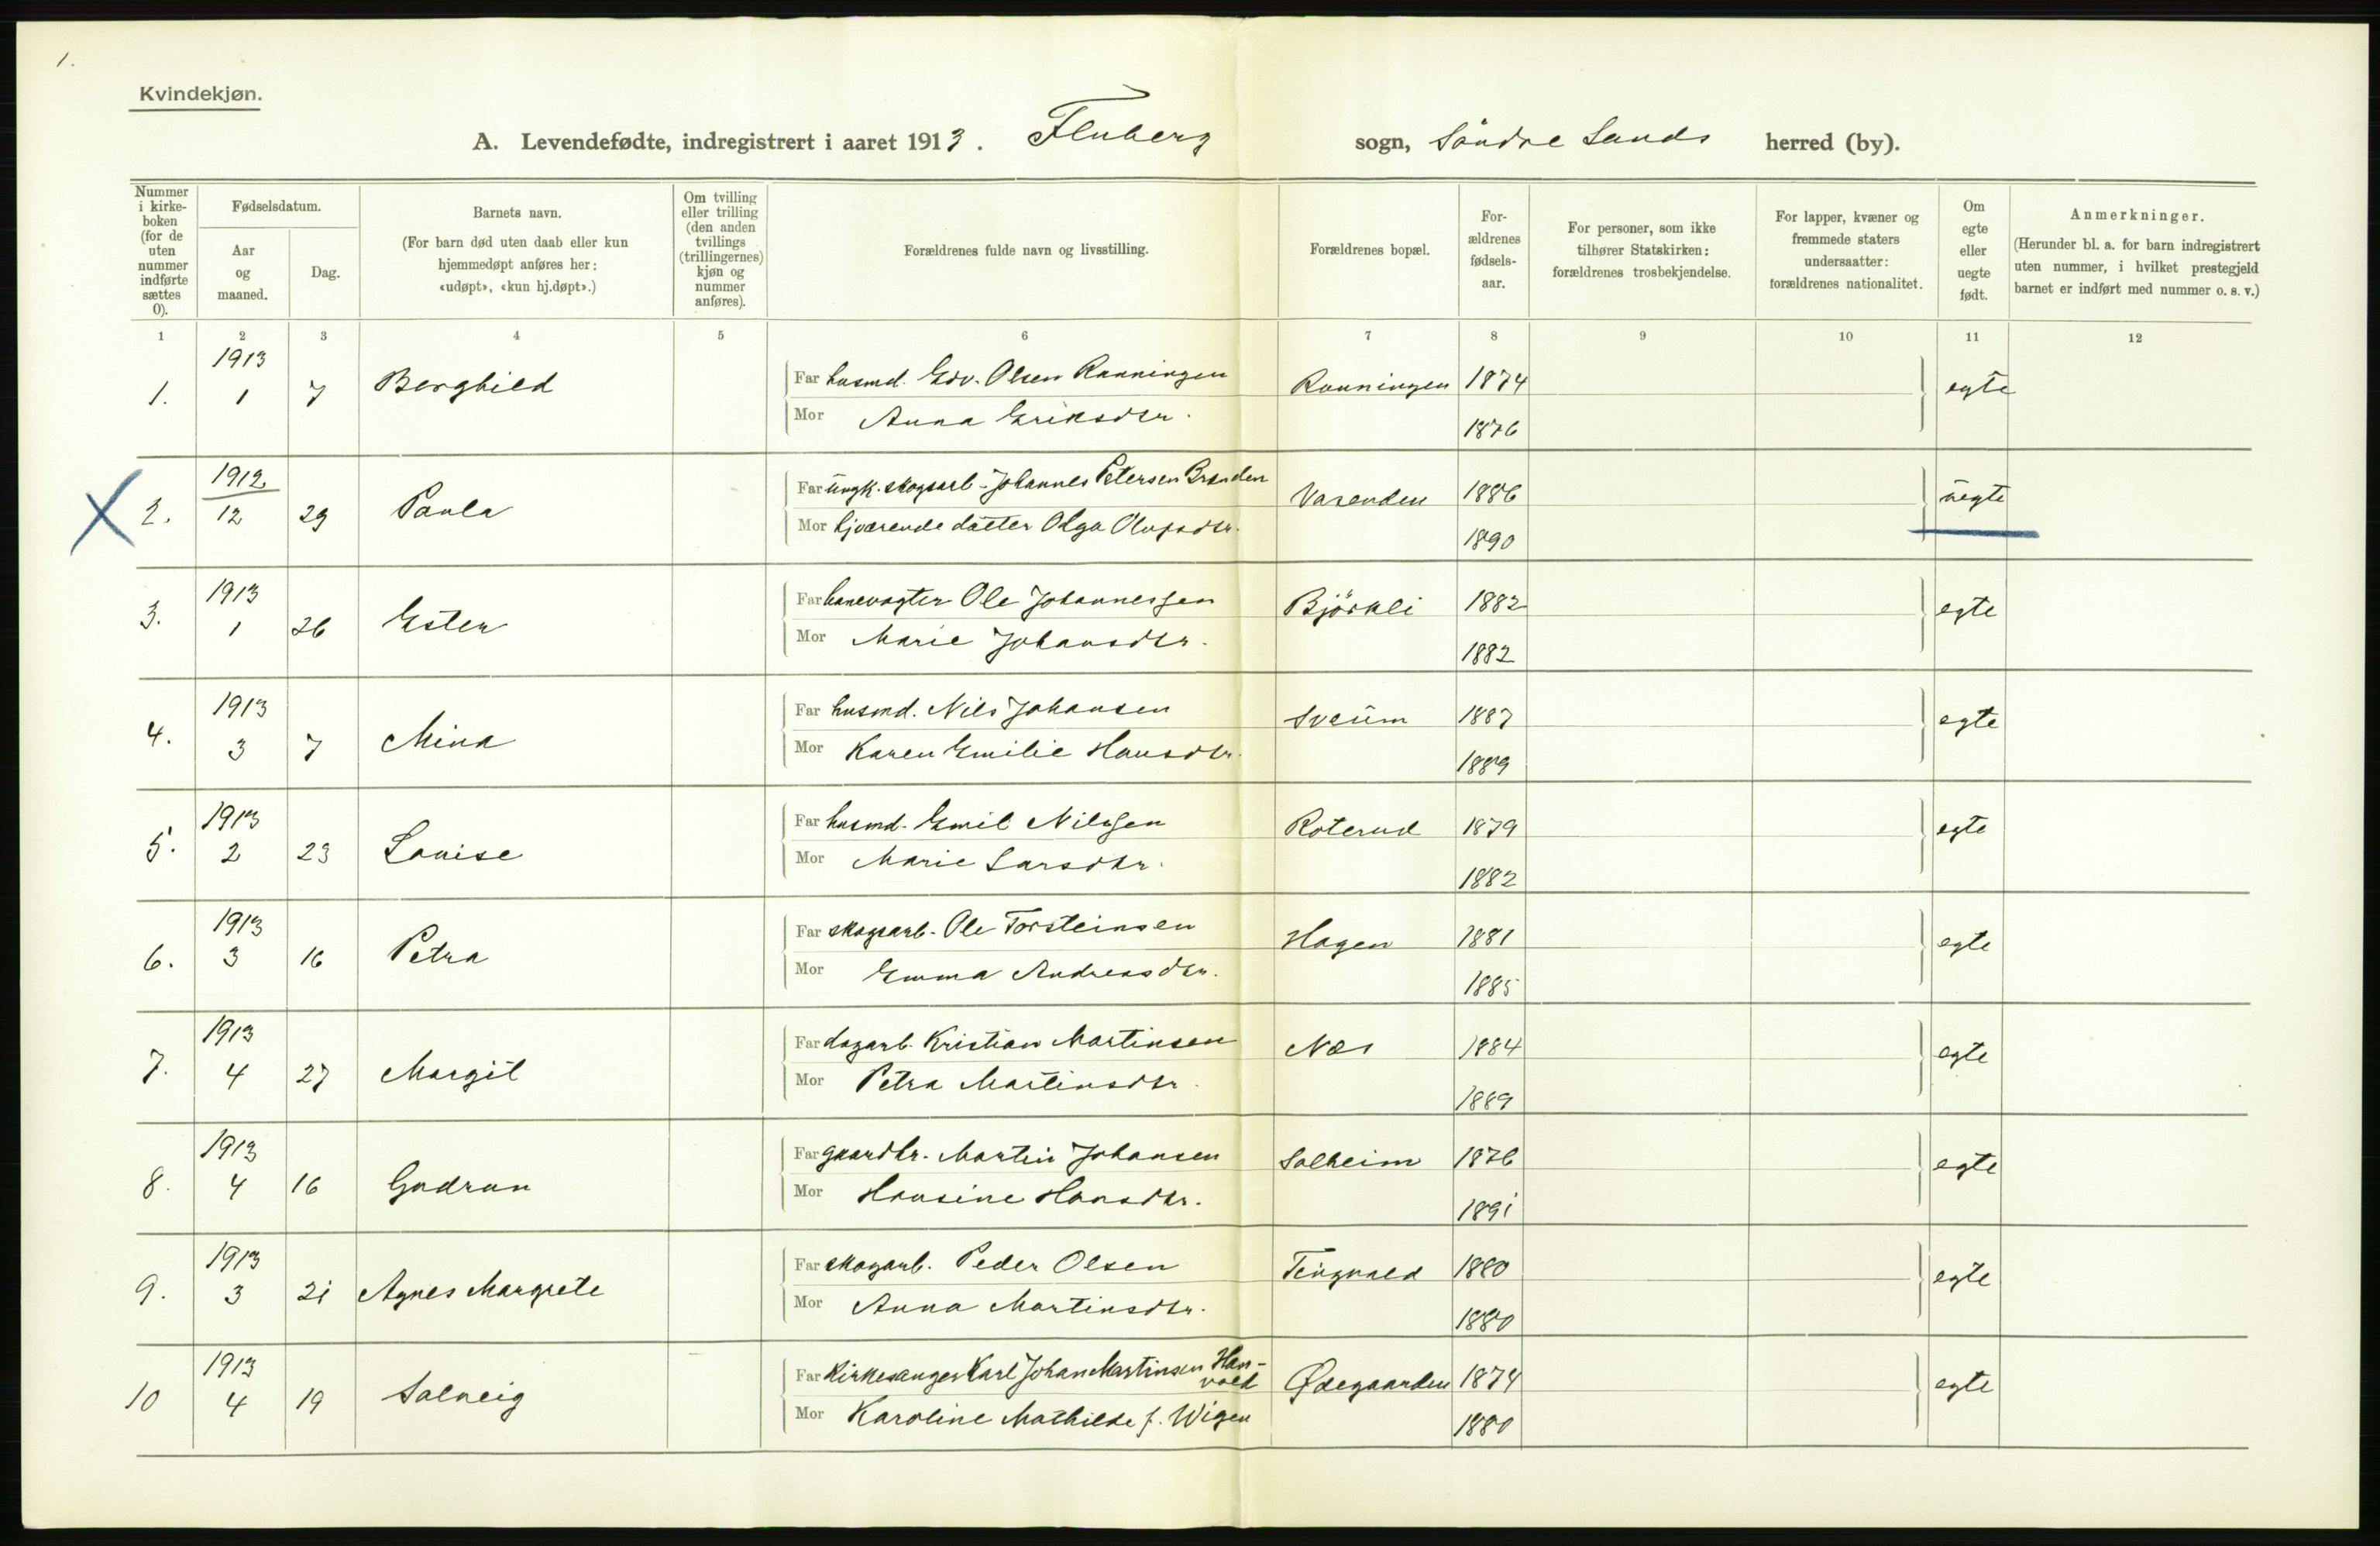 1.
Kvindekjøn.
A. Levendefødte, indregistrert i aaret 1913. Fluberg sogn, Söndre Lands herred (by).
Nummer i kirkeboken (for de uten nummer indførte sættes 0).
Fødselsdatum.
Aar og maaned.
Dag.
Barnets navn.
(For barn død uten daab eller kun hjemmedøpt anføres her: «udøpt», «kun hj.døpt».)
Om tvilling eller trilling (den anden tvillings (trillingernes) kjøn og nummer anføres).
Forældrenes fulde navn og livsstilling.
Forældrenes bopæl.
Forældrenes fødselsaar.
For personer, som ikke tilhører Statskirken: forældrenes trosbekjendelse.
For lapper, kvæner og fremmede staters undersaatter: forældrenes nationalitet.
Om egte eller uegte født.
Anmerkninger.
(Herunder bl. a. for barn indregistrert uten nummer, i hvilket prestegjeld barnet er indført med nummer o. s. v.)
1 2 3 4 5 6 7 8 9 10 11 12
1. 1913 1 7 Borghild Far husmd. Edv. Olsen Rønningen Rønningen 1874 egte
Mor Anna Eriksdtr. 1876
2. 1912 12 29 Paula Far ungk. skogsarb. Johannes Petersen Brænden Vasenden 1886 uegte
Mor hjværende datter Olga Olufsdtr. 1890
3. 1913 1 26 Ester Far banevogter Ole Johannessen Björkli 1882 egte
Mor Marie Johansdtr. 1882
4. 1913 3 7 Mina Far husmd. Nils Johansen Sveum 1887 egte
Mor Karen Emilie Hansdtr. 1889
5. 1913 2 23 Louise Far husmd. Emil Nilssen Roterud 1879 egte
Mor Marie Larsdtr. 1882
6. 1913 3 16 Petra Far skogsarb. Ole Torsteinsen Hagen 1881 egte
Mor Emma Andreasdtr. 1885
7. 1913 4 27 Margit Far dagarb. Kristian Martinsen Næs 1884 egte
Mor Petra Martinsdtr. 1889
8. 1913 4 16 Gudrun Far gaardbr. Martin Johansen Solheim 1876 egte
Mor Hansine Hansdtr. 1891
9. 1913 3 21 Agnes Margrete Far skogarb. Peder Olsen 1880 egte
Mor Anna Martinsdtr. 1880
10 1913 4 19 Solveig Far Kirkesanger Karl Johan Martinsen Hanvold Ødegaarden 1874 egte
Mor Karoline Mathilde f. Wigen 1880